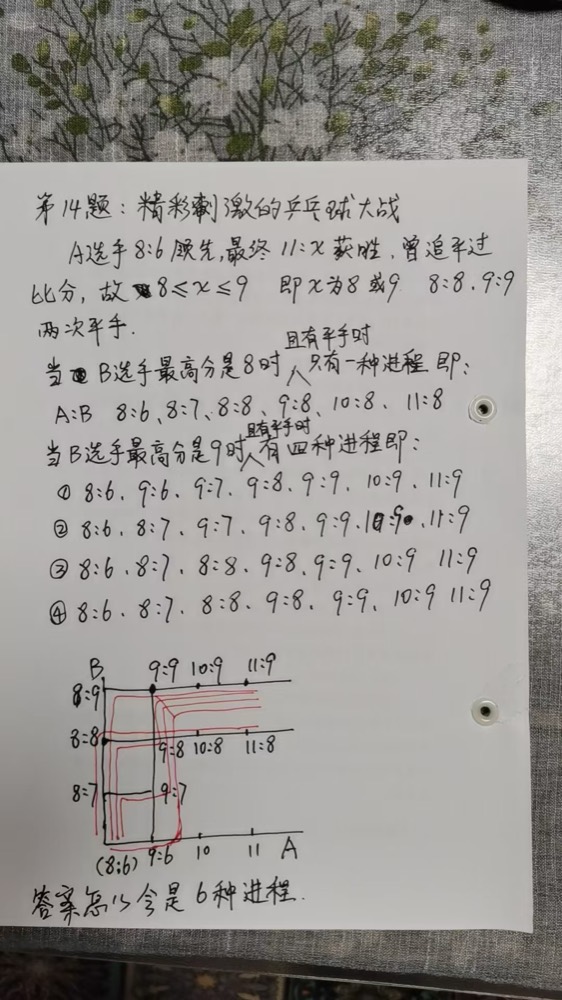 第14题：精彩刺激的乒乓球大战
A选手8:6领先,最终11:x获胜,曾追平过
比分，故8≤x≤9 即x为8或9 8:8、9:9
两次平手.
当B选手最高分是8时且有平手时只有一种进程即：
A:B 8:6、8:7、8:8、9:8、10:8、11:8
当B选手最高分是9时且有平手时有四种进程即：
① 8:6、9:6、9:7、9:8、9:9、10:9、11:9
② 8:6、8:7、9:7、9:8、9:9、10:9、11:9
③ 8:6、8:7、8:8、9:8、9:9、10:9 11:9
④ 8:6、8:7、8:8、9:8、9:9、10:9 11:9
B 9:9 10:9 11:9
8:9
8:8 9:8 10:8 11:8
8:7 9:7
(8:6) 9:6 10 11 A
答案怎么会是6种进程.